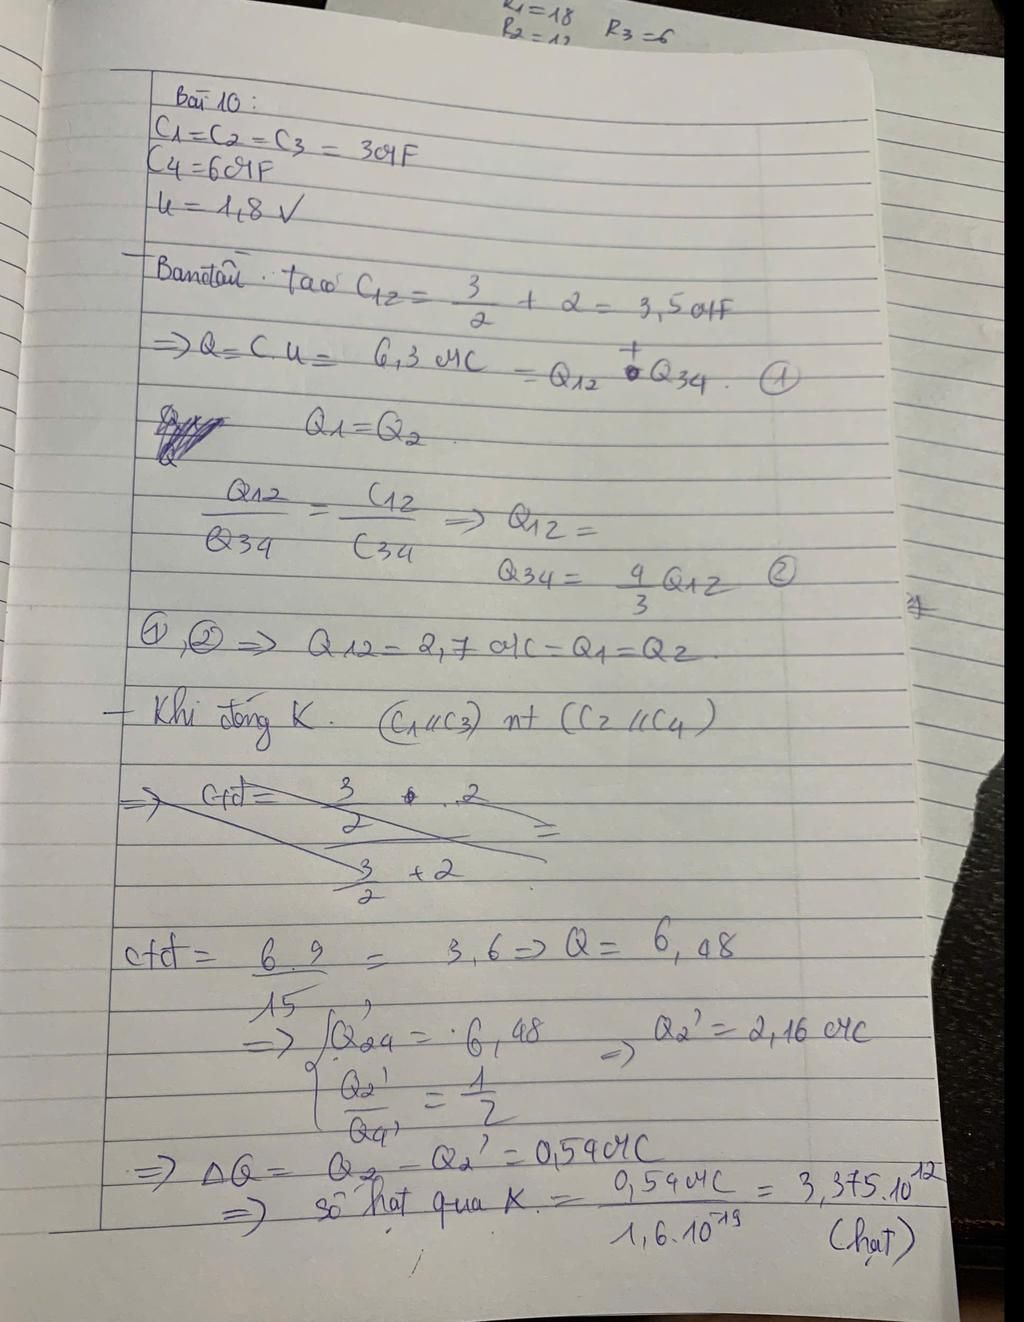 R1=18
R2=12 R3=6
Bài 10:
C1=C2=C3=3μF
C4=6μF
U=1,8V
- Ban đầu. tạo C12= 3/2 + 2 = 3,5μF
=> Q=C.U= 6,3 μC = Q12 + Q34. ①
Q1=Q2.
Q12/Q34 = C12/C34 => Q12=
Q34= 4/3 Q12 ②
①,② => Q12=2,7 μC=Q1=Q2.
- Khi đóng K. (C1//C3) nt (C2//C4)
=> Ctđ= (3/2 . 2)/(3/2 + 2) =
Ctđ= 6.9/15 = 3,6 => Q= 6,48
=> { Q24' = 6,48 => Q2'=2,16 μC
Q2'/Q4' = 1/2
=> ΔQ= Q2-Q2'=0,54μC
=> số hạt qua K. = 0,54μC/1,6.10^-19 = 3,375.10^12
(hạt)